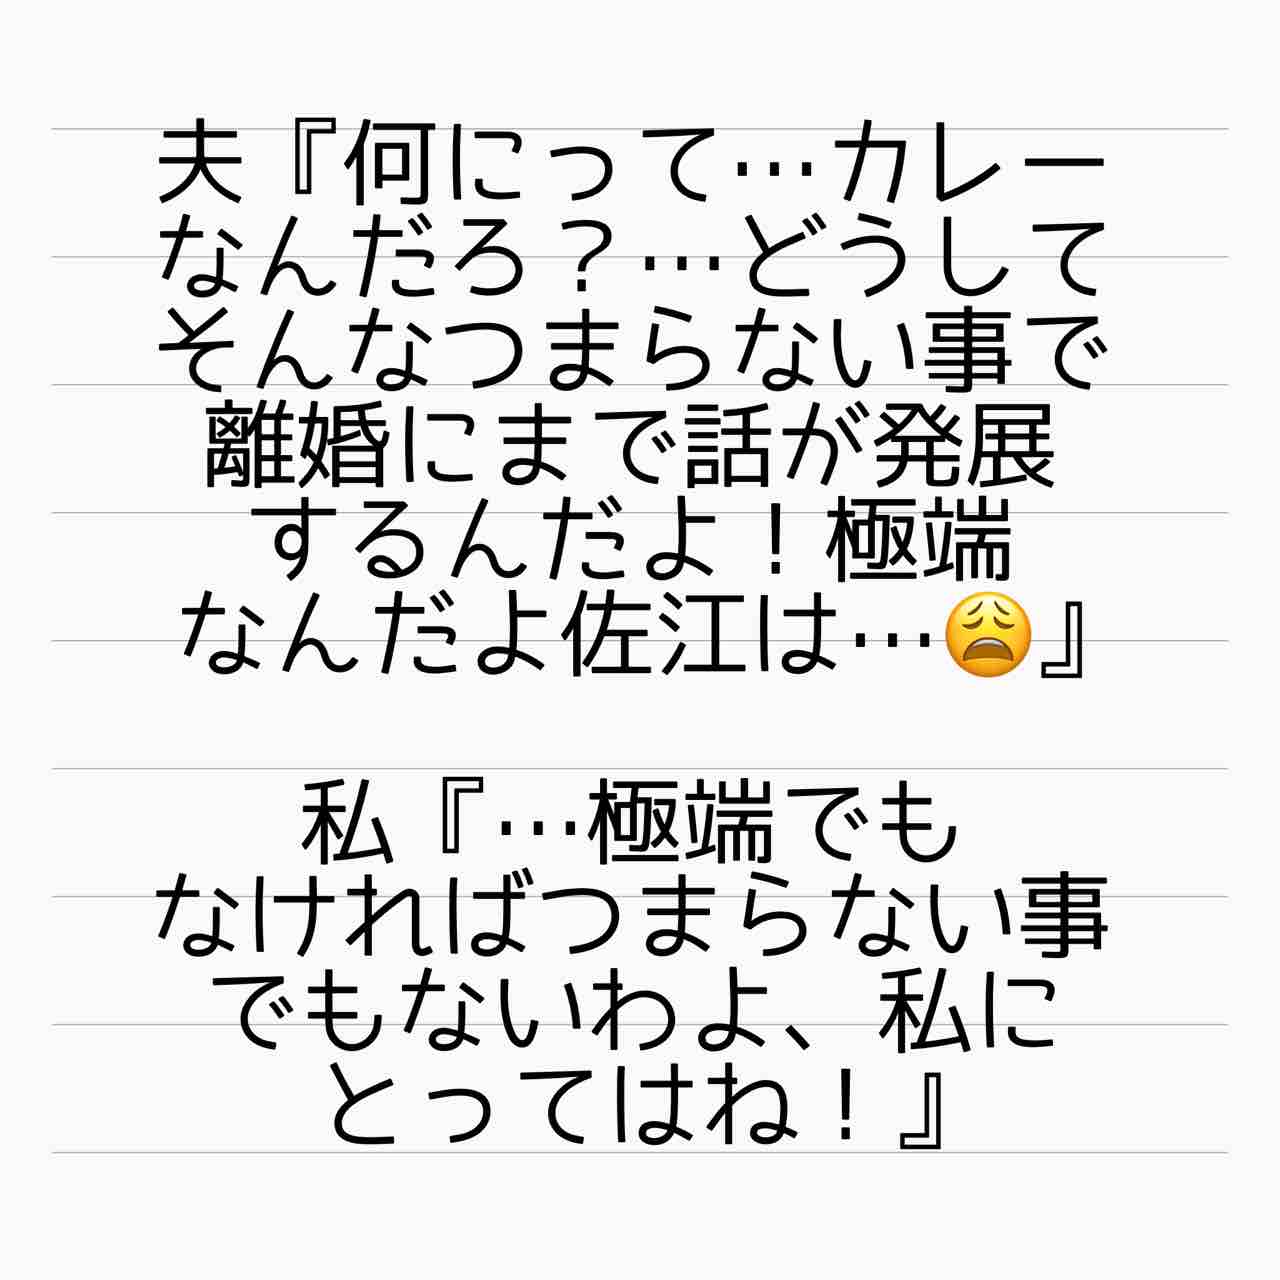 夫『何にって…カレー
なんだろ？…どうして
そんなつまらない事で
離婚にまで話が発展
するんだよ！極端
なんだよ佐江は…😩』
私『…極端でも
なければつまらない事
でもないわよ、私に
とってはね！』